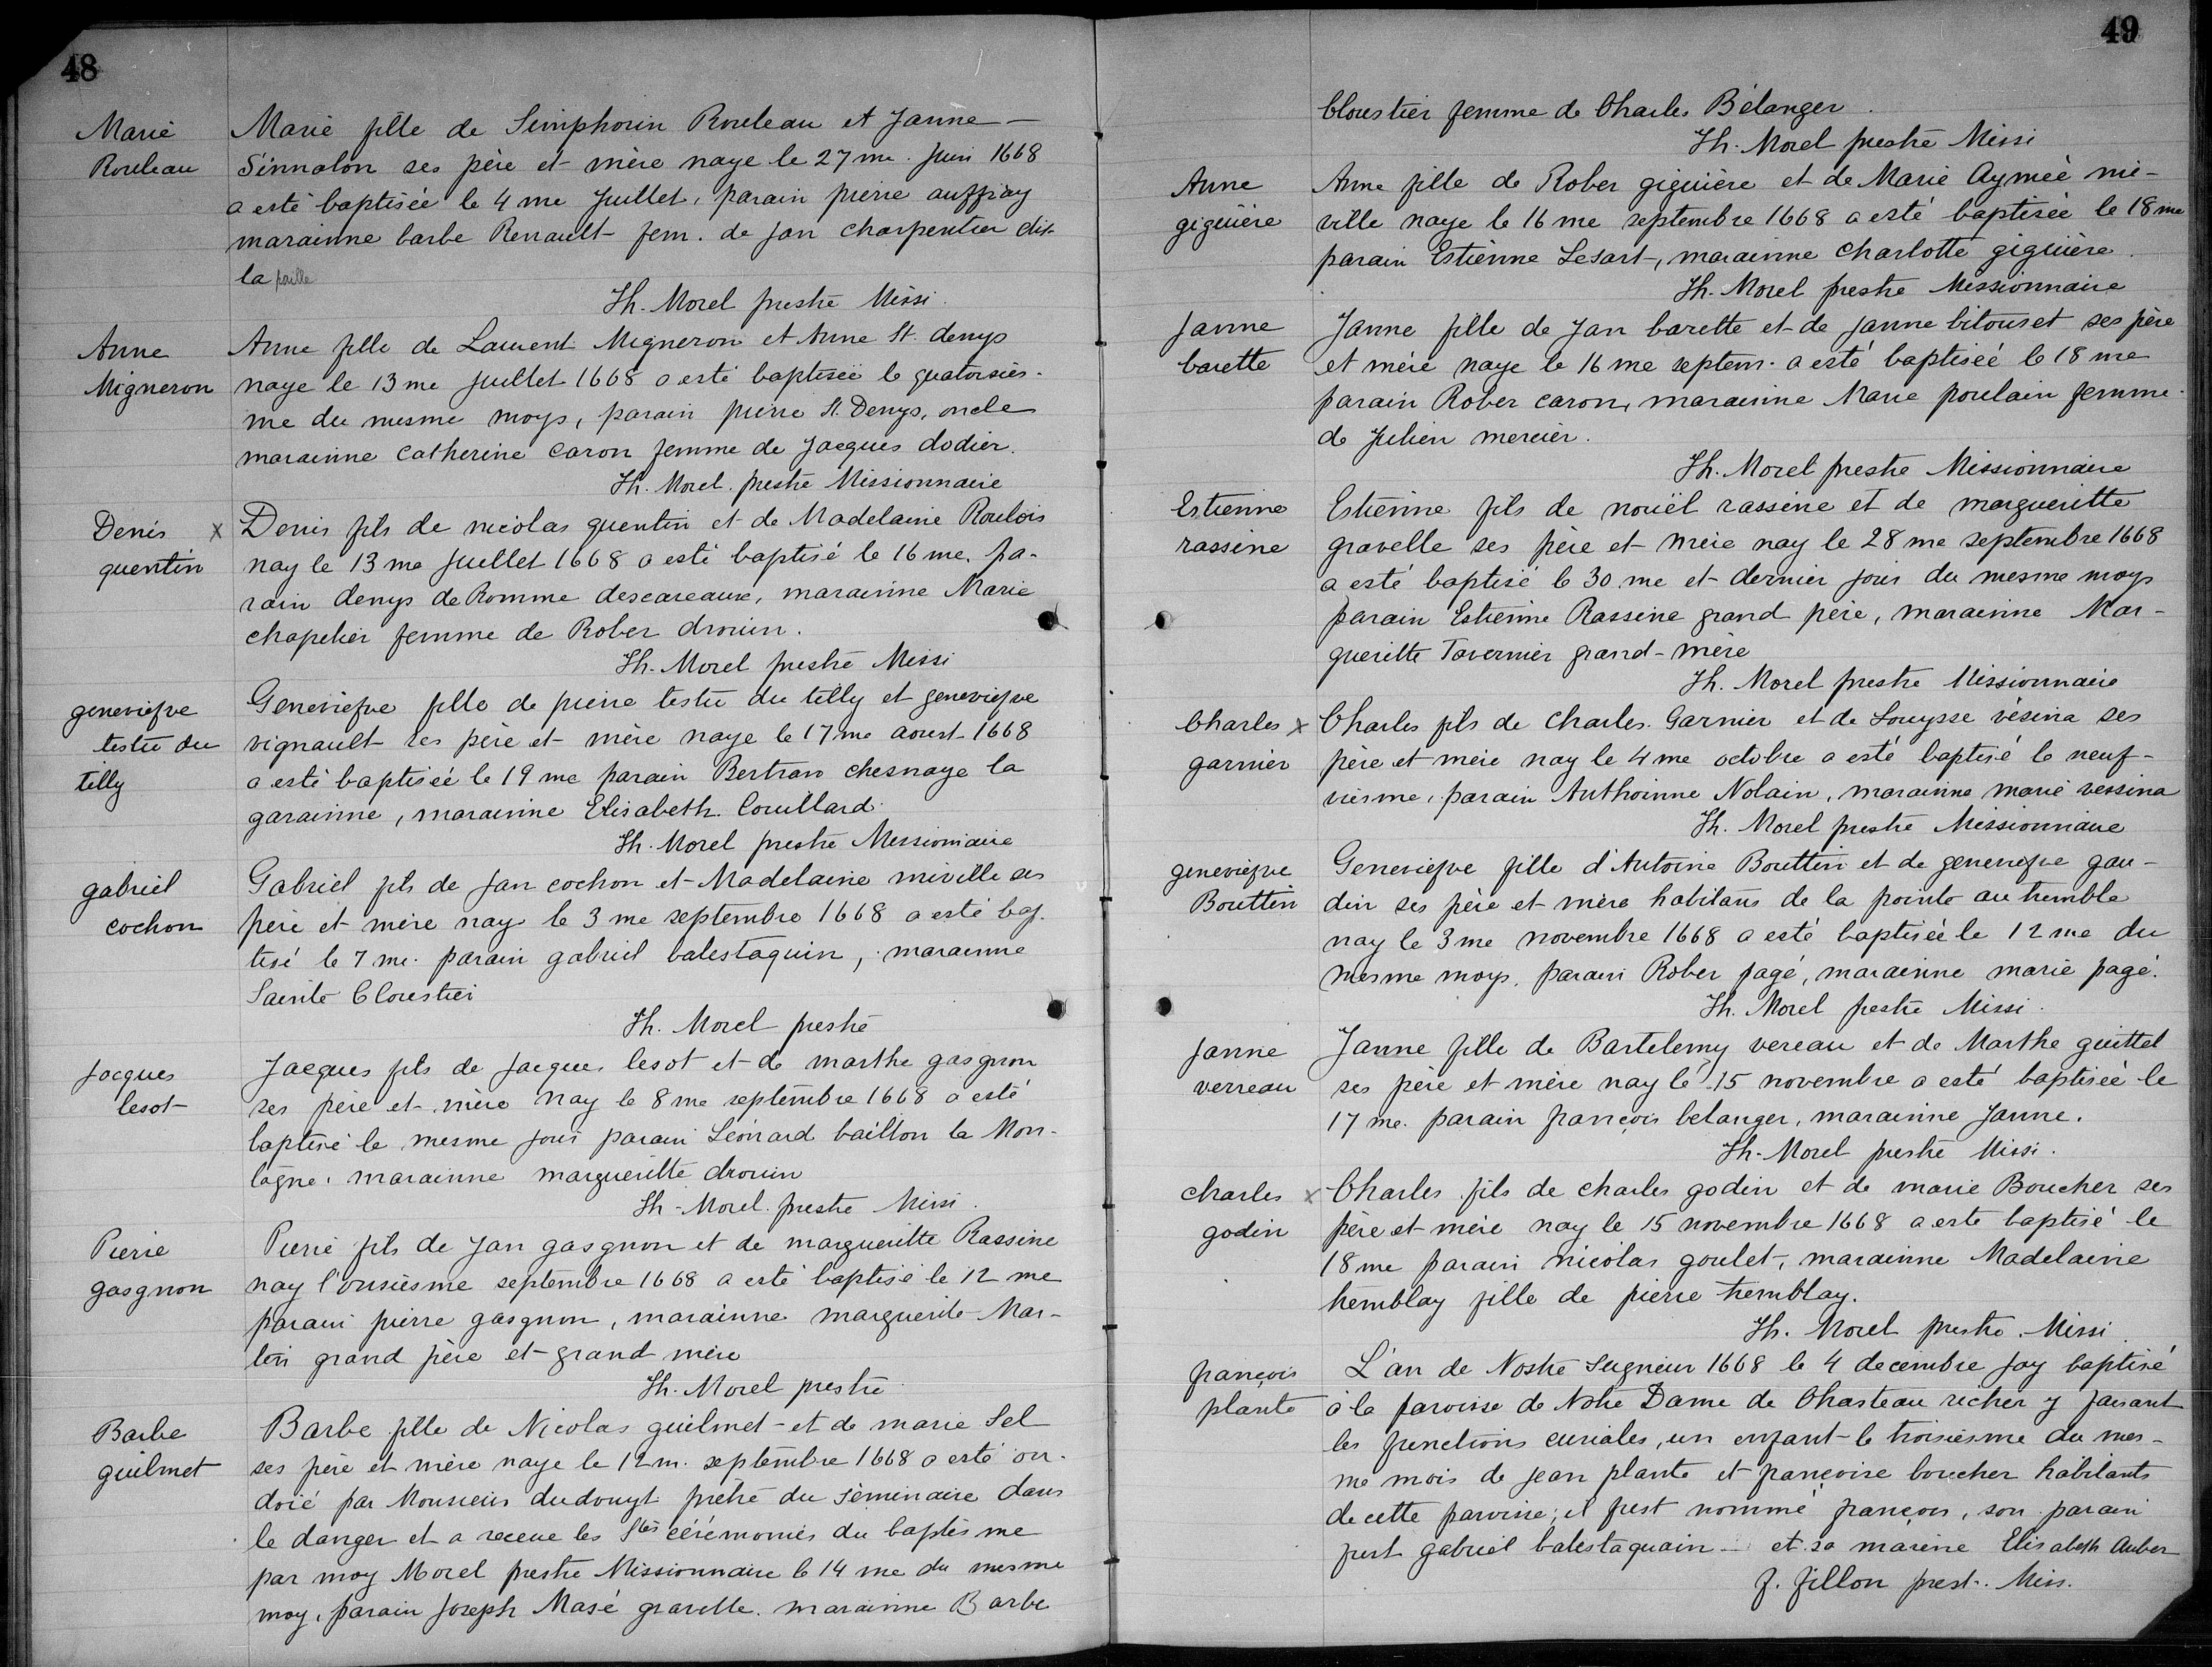 48
Marie Marie fille de Simphorin Rouleau et Janne —
Rouleau Sinnalon ses père et mère naye le 27 me. Juin 1668
a esté baptisée le 4 me Juillet, parain pierre auffray
marainne barbe Renault fem. de Jan charpentier dit
la paille
Th. Morel prestre Missi.
Anne Anne fille de Laurent Migneron et Anne St. denys
Migneron naye le 13 me Juillet 1668 a esté baptisée le quatorsiès-
me du mesme moys, parain pierre St. Denys, oncle
marainne catherine caron femme de Jacques dodier.
Th. Morel prestre Missionnaire
Denis x Denis fils de nicolas quentin et de Madelaine Roulois
quentin nay le 13 me Juillet 1668 a esté baptisé le 16 me. pa-
rain denys de Romme descareaux, marainne Marie
chapelier femme de Rober drouin.
Th. Morel prestre Missi
geneviefve Geneviefve fille de pierre testu du tilly et geneviefve
testu du vignault ses père et mère naye le 17 me aoust 1668
tilly a esté baptisée le 19 me parain Bertran chesnaye la
garainne, marainne Elisabeth Couillard.
Th. Morel prestre Missionnaire
gabriel Gabriel fils de Jan cochon et Madelaine miville ses
cochon père et mère nay le 3 me septembre 1668 a esté bap-
tisé le 7 me. parain gabriel balestaquin, marainne
Sainte Cloustier
Th. Morel prestre
Jacques Jacques fils de Jacques lesot et de marthe gasgnon
lesot ses père et mère nay le 8 me septembre 1668 a esté
baptisé le mesme jour parain Léonard baillon la Mon-
tagne. marainne margueritte drouin
Th. Morel prestre Missi.
Pierre Pierre fils de Jan gasgnon et de margueritte Rassine
gasgnon nay l'onsiesme septembre 1668 a esté baptisé le 12 me
parain pierre gasgnon, marainne marguerite Mar-
tin grand père et grand mère
Th. Morel prestre
Barbe Barbe fille de Nicolas guilmet et de marie Sel
guilmet ses père et mère naye le 12 m. septembre 1668 a esté on-
doié par Monsieur dudouyt prêtre du Séminaire dans
le danger et a receue les Stes cérémonies du baptesme
par moy Morel prestre Missionnaire le 14 me du mesme
moy, parain Joseph Masé gravelle. marainne Barbe
49
Cloustier femme de Charles Bélanger.
Th. Morel prestre Missi
Anne Anne fille de Rober giguière et de Marie Aymée mi-
giguière ville naye le 16 me septembre 1668 a esté baptisée le 18 me
parain Estienne Lesart, marainne Charlotte giguière.
Th. Morel prestre Missionnaire
Janne Janne fille de Jan barette et de Janne bitouset ses père
barette et mère naye le 16 me septem. a esté baptiseé le 18 me
parain Rober caron, marainne Marie poulain femme
de Julien mercier.
Th. Morel prestre Missionnaire
Estienne Estienne fils de nouël rassine et de margueritte
rassine gravelle ses père et mère nay le 28 me septembre 1668
a esté baptisé le 30 me et dernier jour du mesme moys
parain Estienne Rassine grand père, marainne Mar-
gueritte Tavernier grand-mère
Th. Morel prestre Missionnaire
Charles x Charles fils de Charles Garnier et de Louysse vésina ses
garnier père et mère nay le 4 me octobre a esté baptisé le neuf-
viesme, parain Anthoinne Nolain, marainne marie vessina
Th. Morel prestre Missionnaire
geneviefve Geneviefve fille d'Antoine Bouttin et de geneviefve gau-
Bouttin din ses père et mère habitans de la pointe au tremble
nay le 3 me novembre 1668 a esté baptisée le 12 me du
mesme moys. parain Rober pagé, marainne marie pagé.
Th. Morel prestre Missi.
Janne Janne fille de Bartelemy vereau et de Marthe quittel
verreau ses père et mère nay le 15 novembre a esté baptisée le
17 me. parain françois belanger, marainne Janne.
Th. Morel prestre Missi.
charles x Charles fils de charles godin et de marie Boucher ses
godin père et mère nay le 15 novembre 1668 a esté baptisé le
18 me parain nicolas goulet, marainne Madelaine
tremblay fille de pierre tremblay.
Th. Morel prestre Missi.
françois L'an de Nostre Seigneur 1668 le 4 decembre jay baptisé
plante à la paroisse de Notre Dame de Chasteau richer y faisant
les functions curiales, un enfant le troisiesme du mes-
me mois de jean plante et françoise boucher habitants
de cette paroisse; il fust nommé françois, son parain
fust gabriel balestaquain et sa marine Elisabeth Auber
F. fillon prest. Miss.